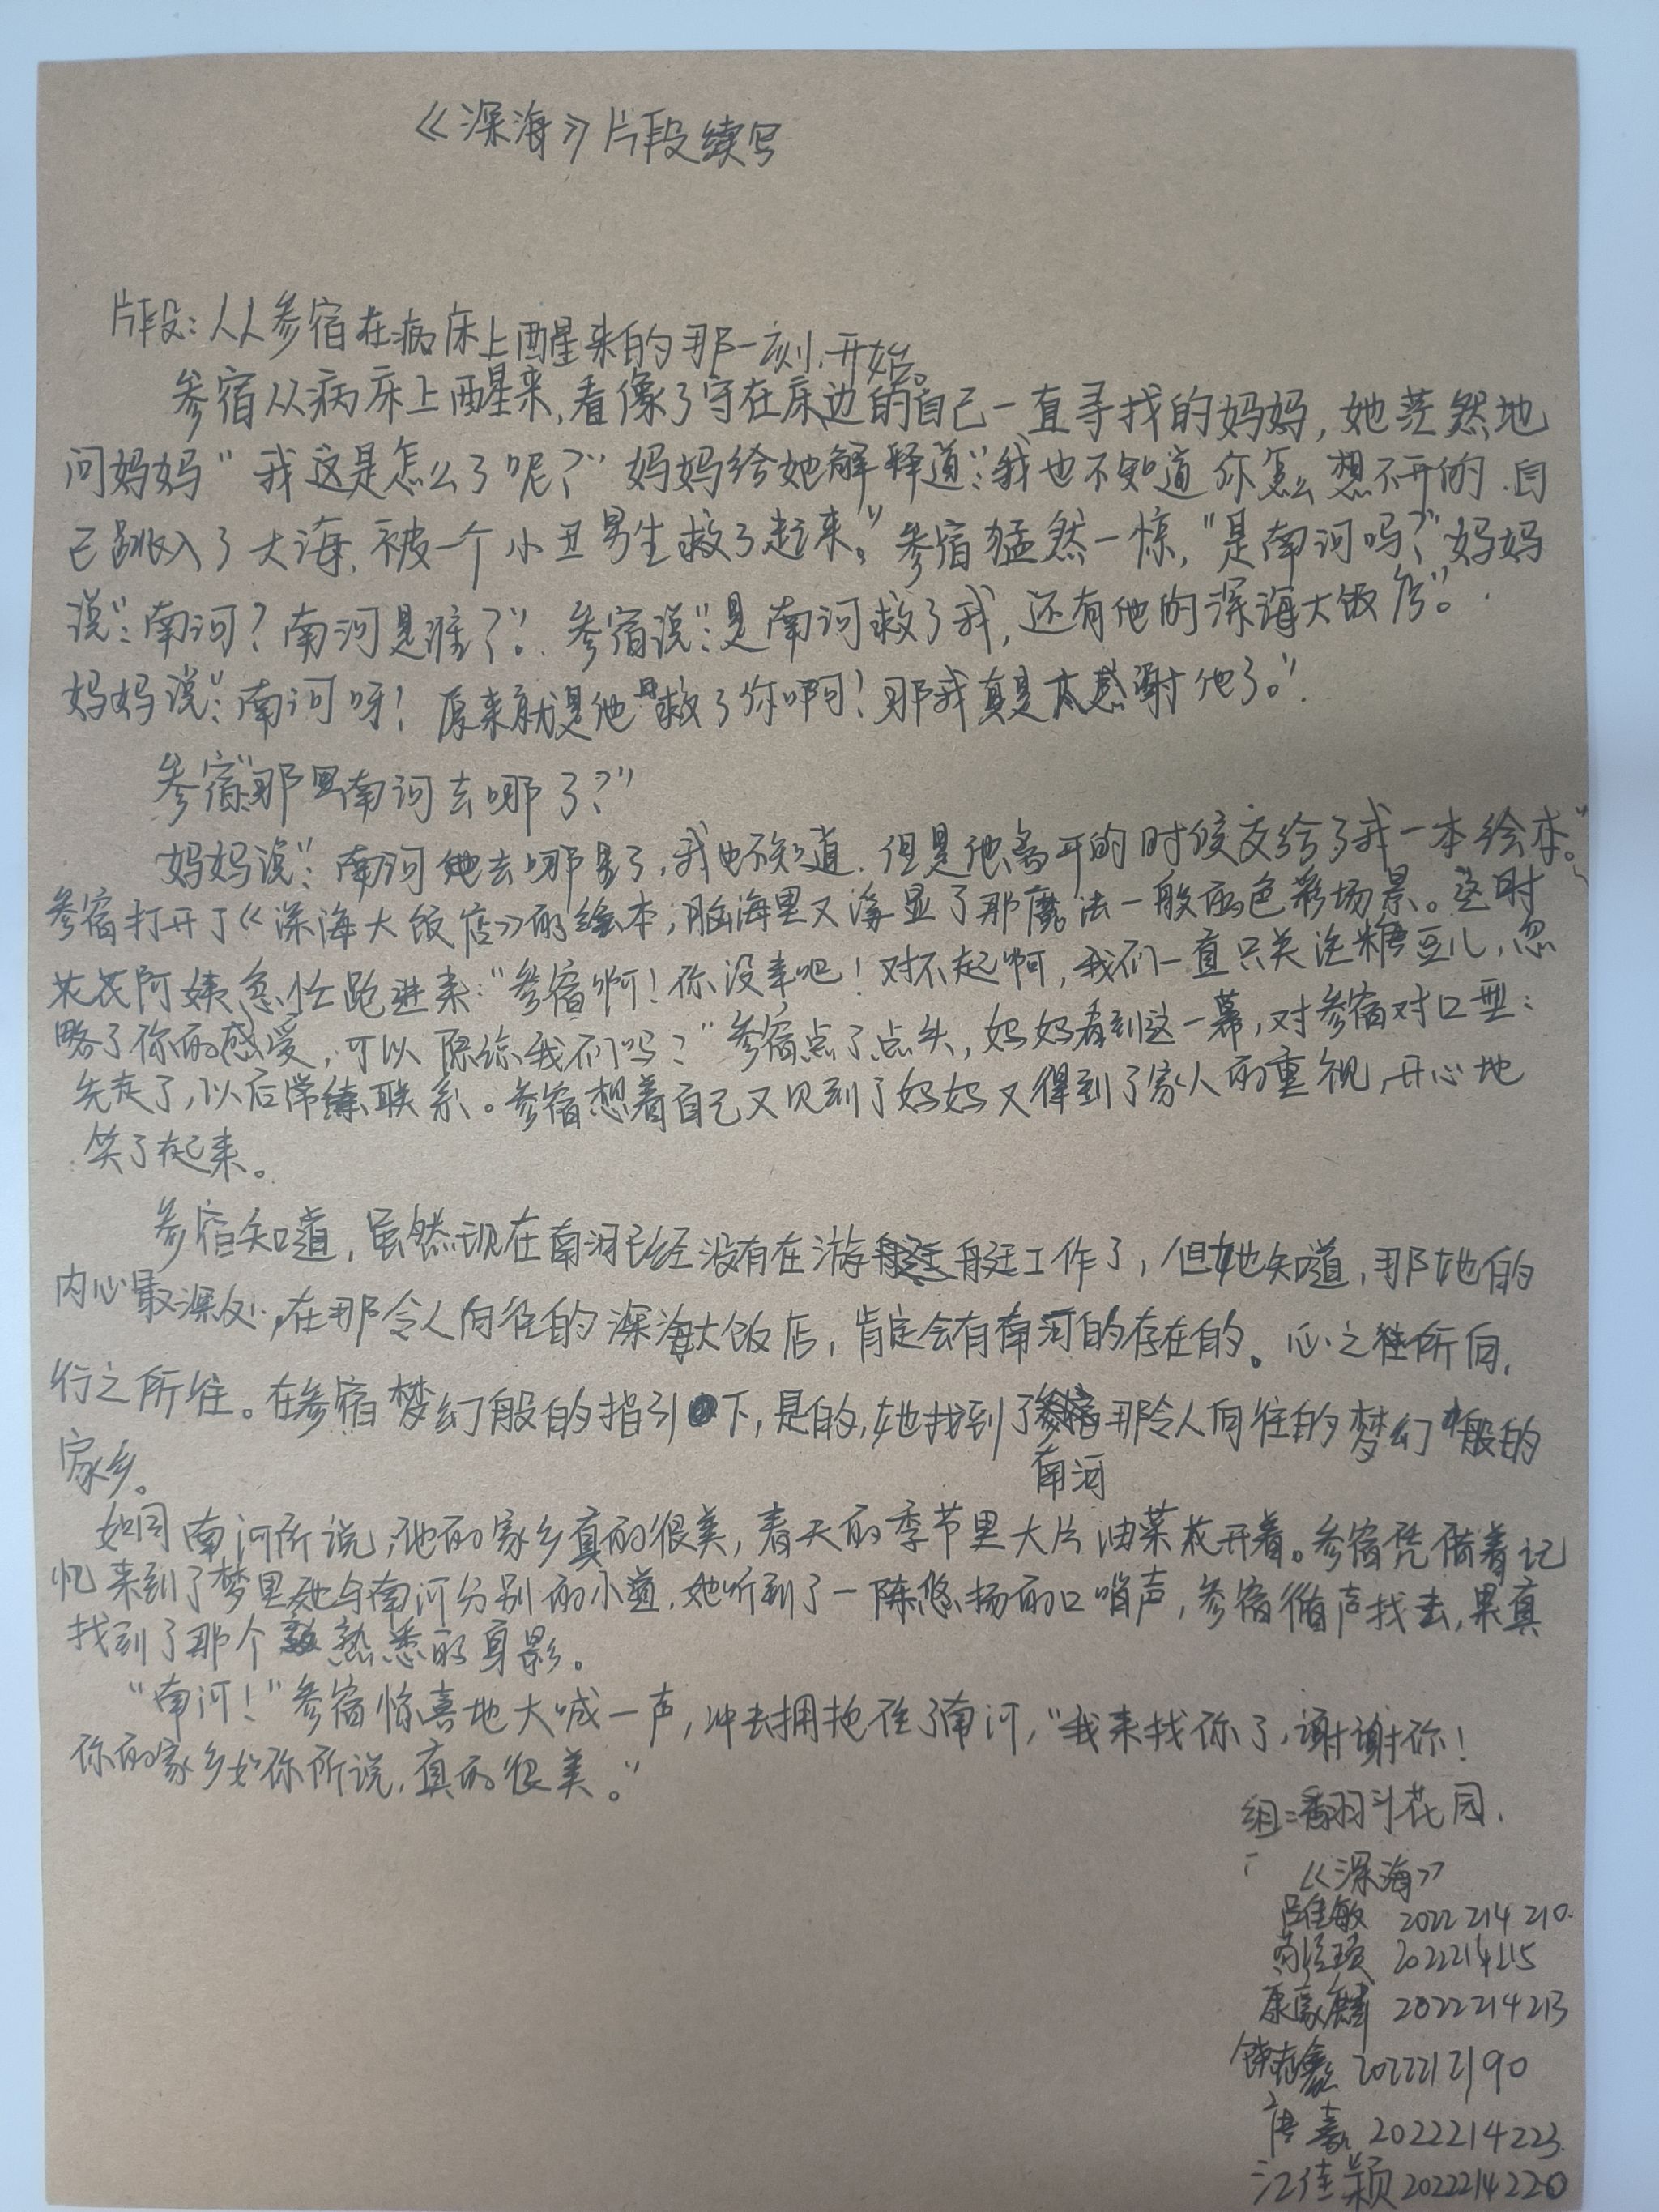 《深海》片段续写
片段：从参宿在病床上醒来的那一刻，开始。
参宿从病床上醒来，看像了守在床边的自己一直寻找的妈妈，她茫然地
问妈妈"我这是怎么了呢？"妈妈给她解释道："我也不知道你怎么想不开的，自
己跳入了大海，被一个小丑男生救了起来。"参宿猛然一惊，"是南河吗？"妈妈
说："南河？南河是谁了"。参宿说："是南河救了我，还有他的深海大饭店"。
妈妈说："南河呀！原来就是他救了你啊！那我真是太感谢他了。"
参宿："那南河去哪了？"
妈妈说："南河他去哪了，我也不知道，但是他离开的时候交给了我一本绘本。"
参宿打开了《深海大饭店》的绘本，脑海里又浮显了那魔法一般的色彩场景。这时
花花阿姨急忙跑进来："参宿啊！你没事吧！对不起啊，我们一直只关注糖豆儿，忽
略了你的感受，可以原谅我们吗？"参宿点了点头，妈妈看到这一幕，对参宿对口型：
先走了，以后常联系。参宿想着自己又见到了妈妈又得到了家人的重视，开心地
笑了起来。
参宿知道，虽然现在南河已经没有在游艇工作了，但她知道，那她的
内心最深处，在那令人向往的深海大饭店，肯定会有南河的存在的。心之所向，
行之所往。在参宿梦幻般的指引下，是的，她找到了南河那令人向往的梦幻般的
家乡。
如同南河所说，他的家乡真的很美，春天的季节里大片油菜花开着。参宿凭借着记
忆来到了梦里她与南河分别的小道，她听到了一阵悠扬的口哨声，参宿循声找去，果真
找到了那个熟悉的身影。
"南河！"参宿惊喜地大喊一声，冲去拥抱住了南河，"我来找你了，谢谢你！
你的家乡如你所说，真的很美。"
组：翻斗花园.
《深海》
吕佳敏 2022214210
2022214215
康家麟 2022214213
2022212190
唐 2022214223
江佳颖 2022214220